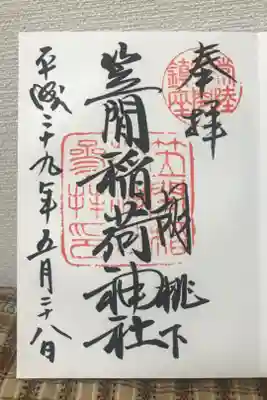 奉拝
胡桃下
笠間稲荷神社
平成二十九年五月二十八日